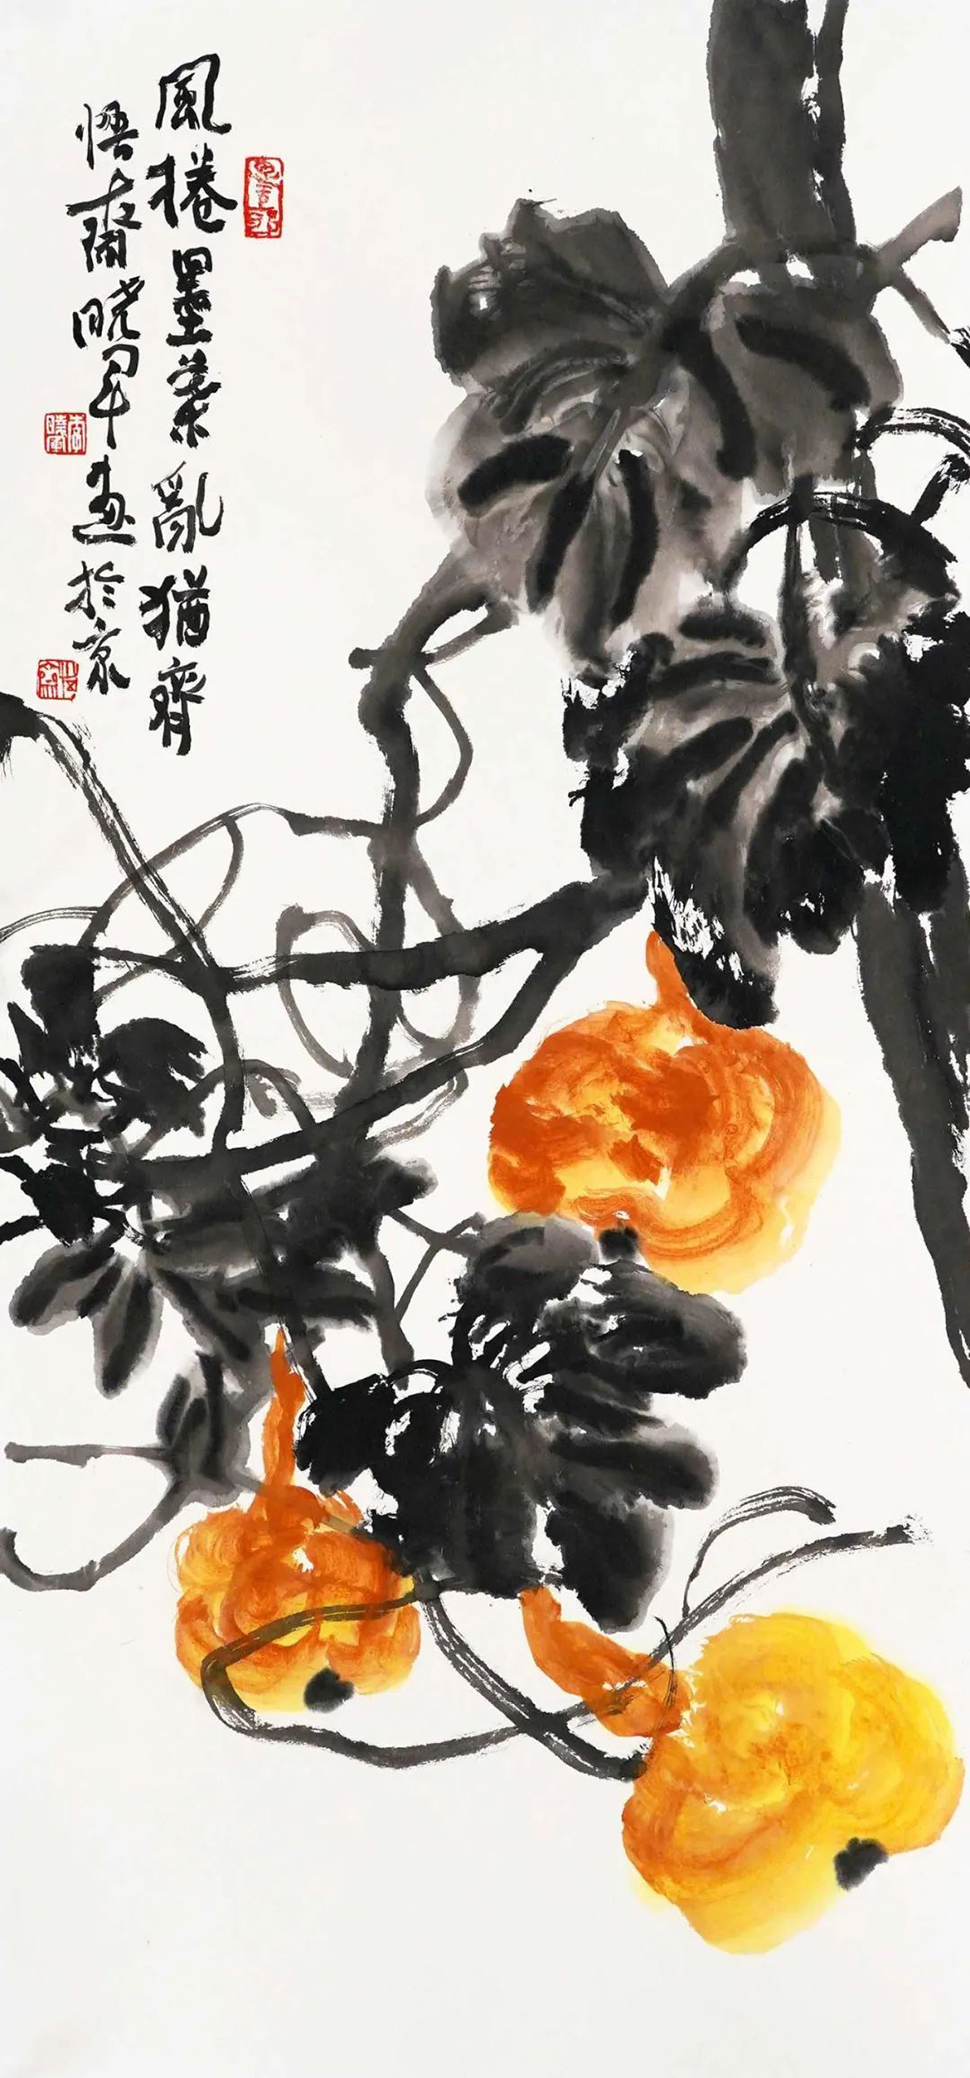 風捲墨葉亂猶齊
悟齋曉軍畫於京